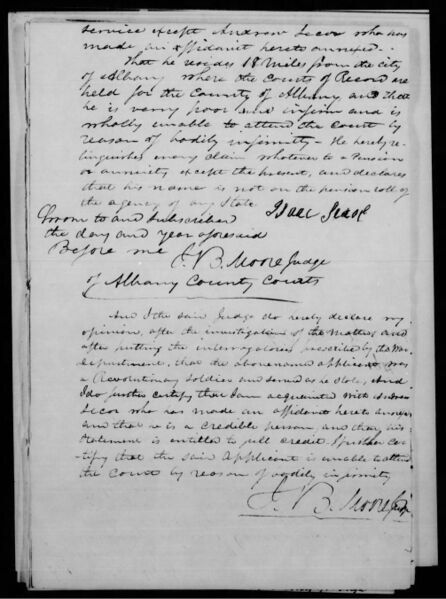 service except Andrew Secor who has
made an affidavit hereto annexed.
That he resides 18 Miles from the city
of Albany where the Courts of Record are
held for the County of Albany and that
he is very poor and infirm and is
wholly unable to attend the court by
reason of bodily infirmity - He hereby re-
linquishes every claim whatever to a Pension
or annuity except the present, and declares
that his name is not on the pension roll of
the agency of any State
Sworn to and Subscribed Isaac
the day and year aforesaid
Before me J. B. Moore Judge
of Albany County Courts
And I the said Judge do hereby declare my
opinion, after the investigation of the matter, and
after putting the interrogatories prescribed by the War
department, that the abovenamed applicant was
a Revolutionary Soldier and served as he states, And
I do further certify that I am acquainted with Andrew
Secor who has made an affidavit hereto annexed
and that he is a credible person, and that his
statement is entitled to full credit. I further cer-
tify that the said Applicant is unable to attend
the Court by reason of bodily infirmity
J. B. Moore Judge